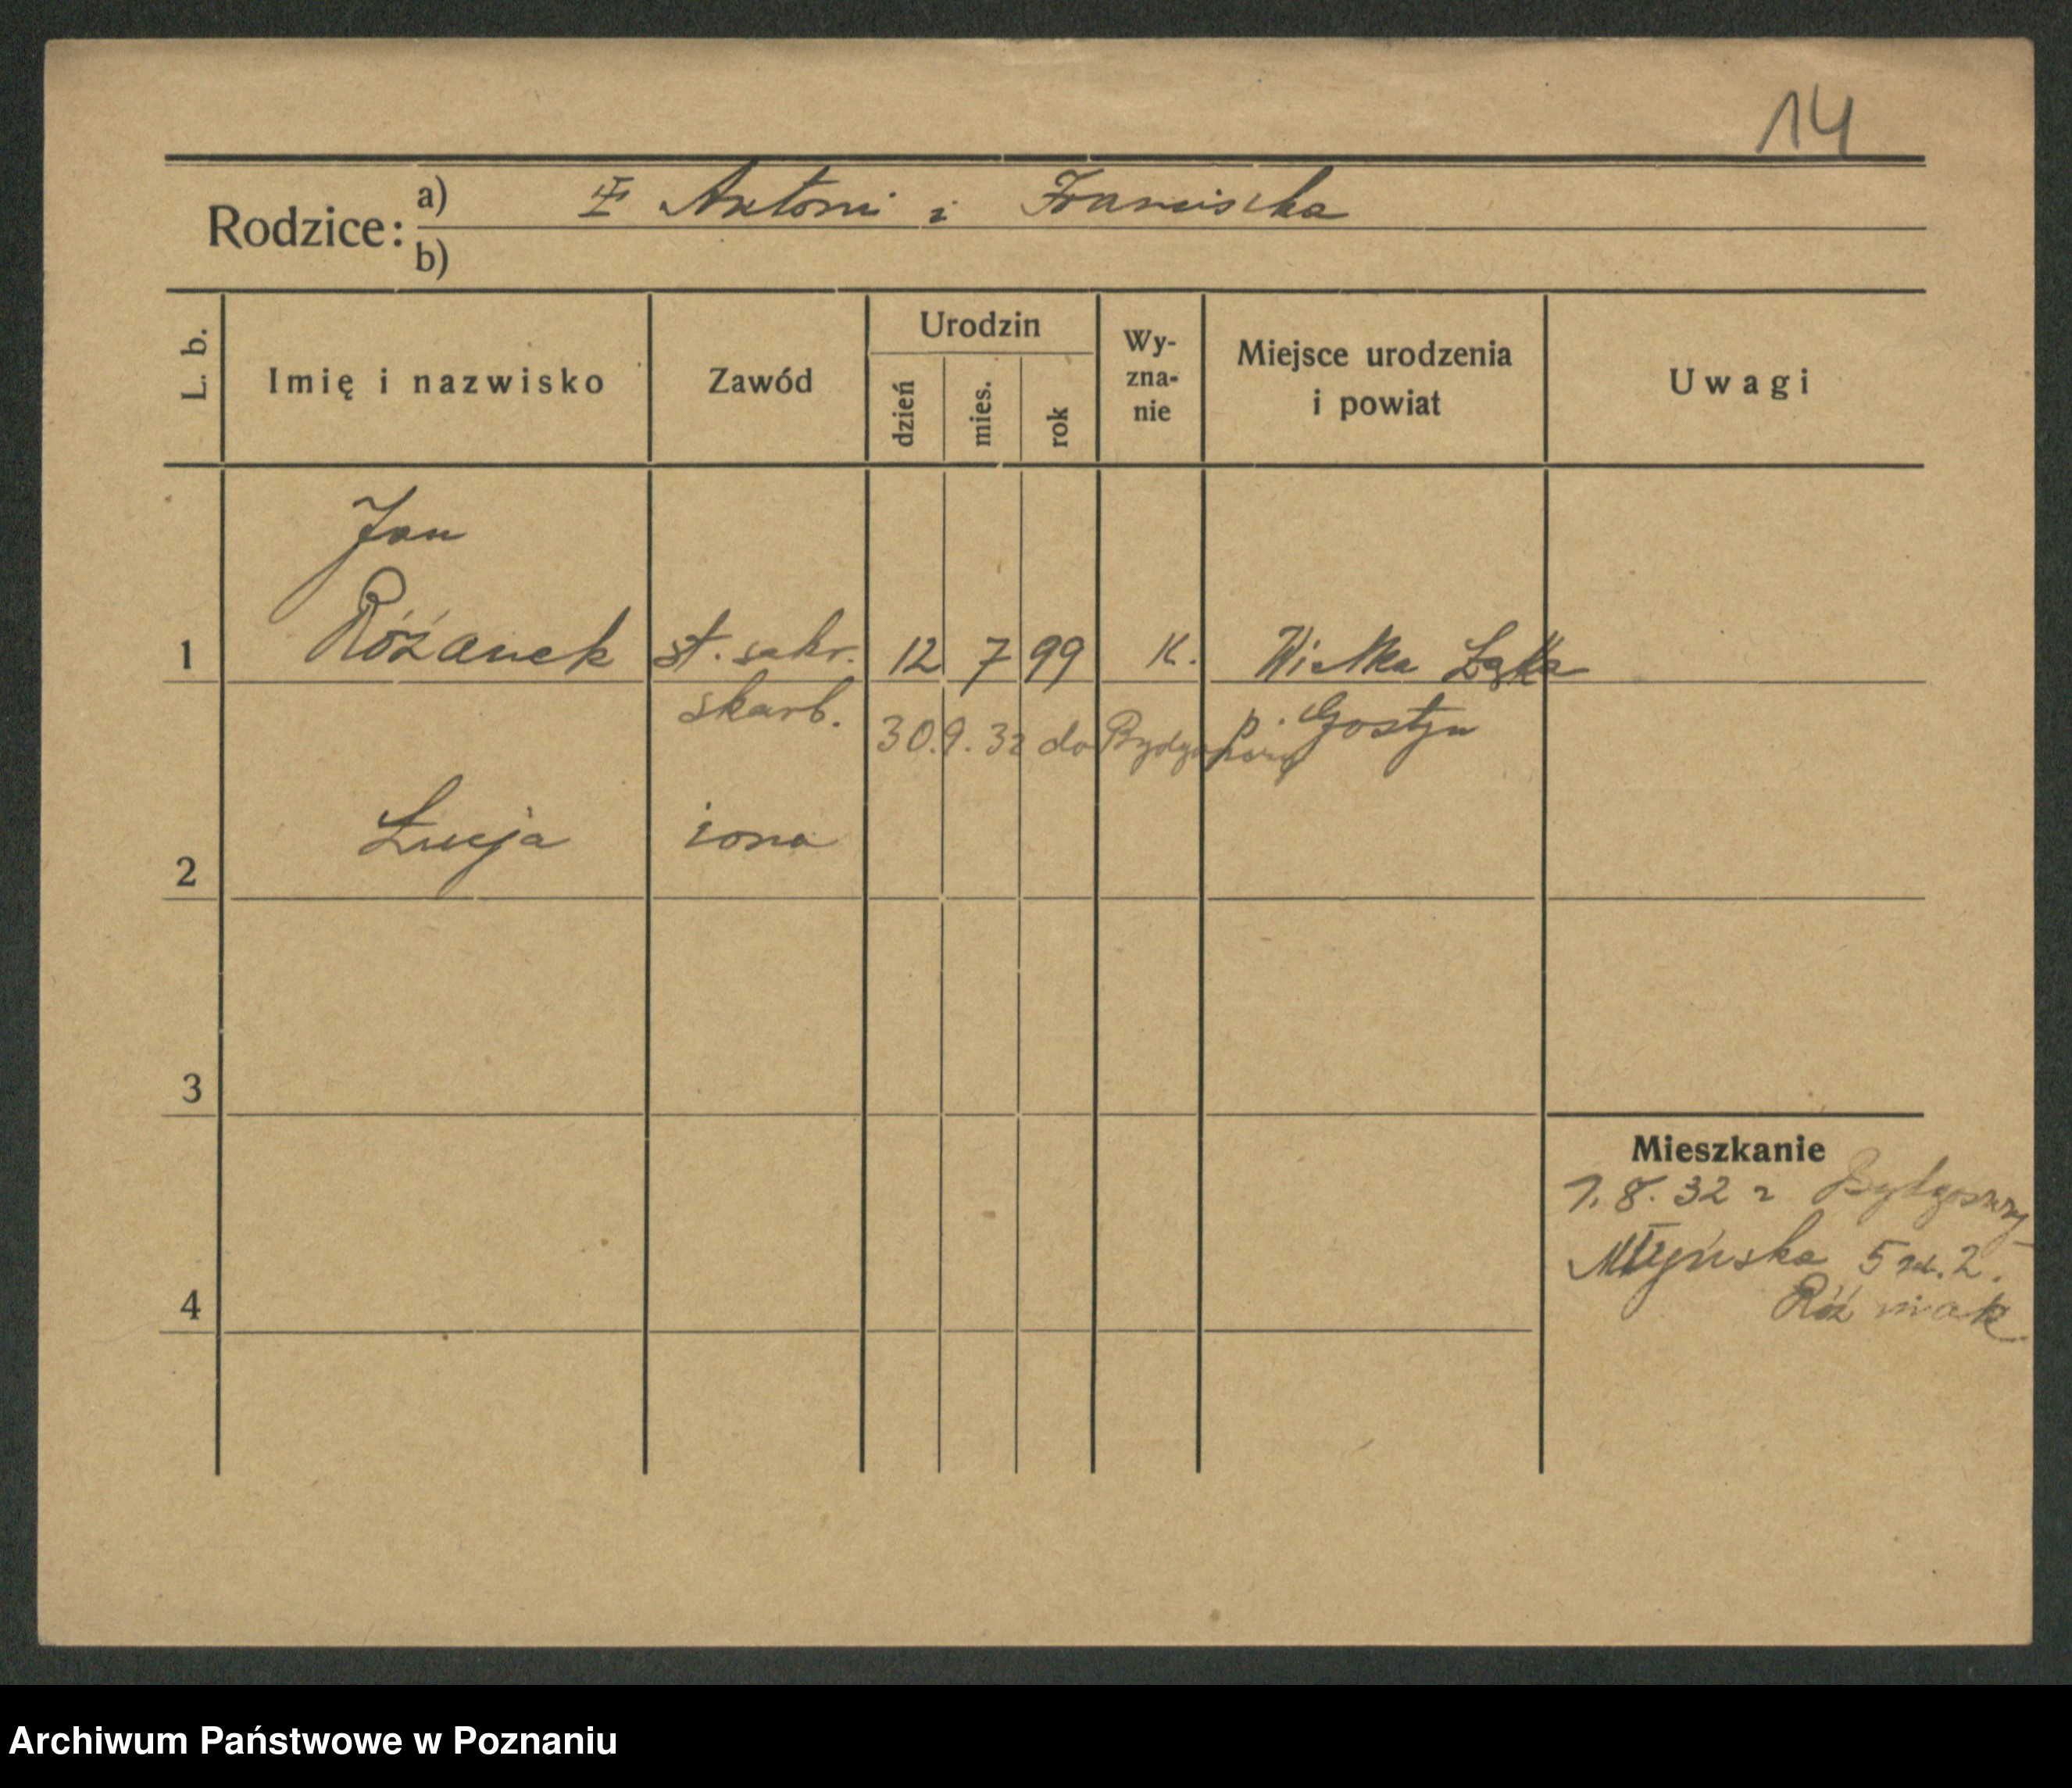 14
Rodzice: a) I Antoni i Franciszka
b)
L. b. Imię i nazwisko Zawód Urodzin dzień mies. rok Wy-zna-nie Miejsce urodzenia i powiat Uwagi
Jan
1 Różanek st. sekr. 12 7 99 K. Wielka Łąka
skarb. p. Gostyn
30.9.32 do Bydgoszczy
2 Łucja żona
3
Mieszkanie
1.8.32 z Bydgoszczy
Młyńska 5 m. 2.
4
Archiwum Państwowe w Poznaniu